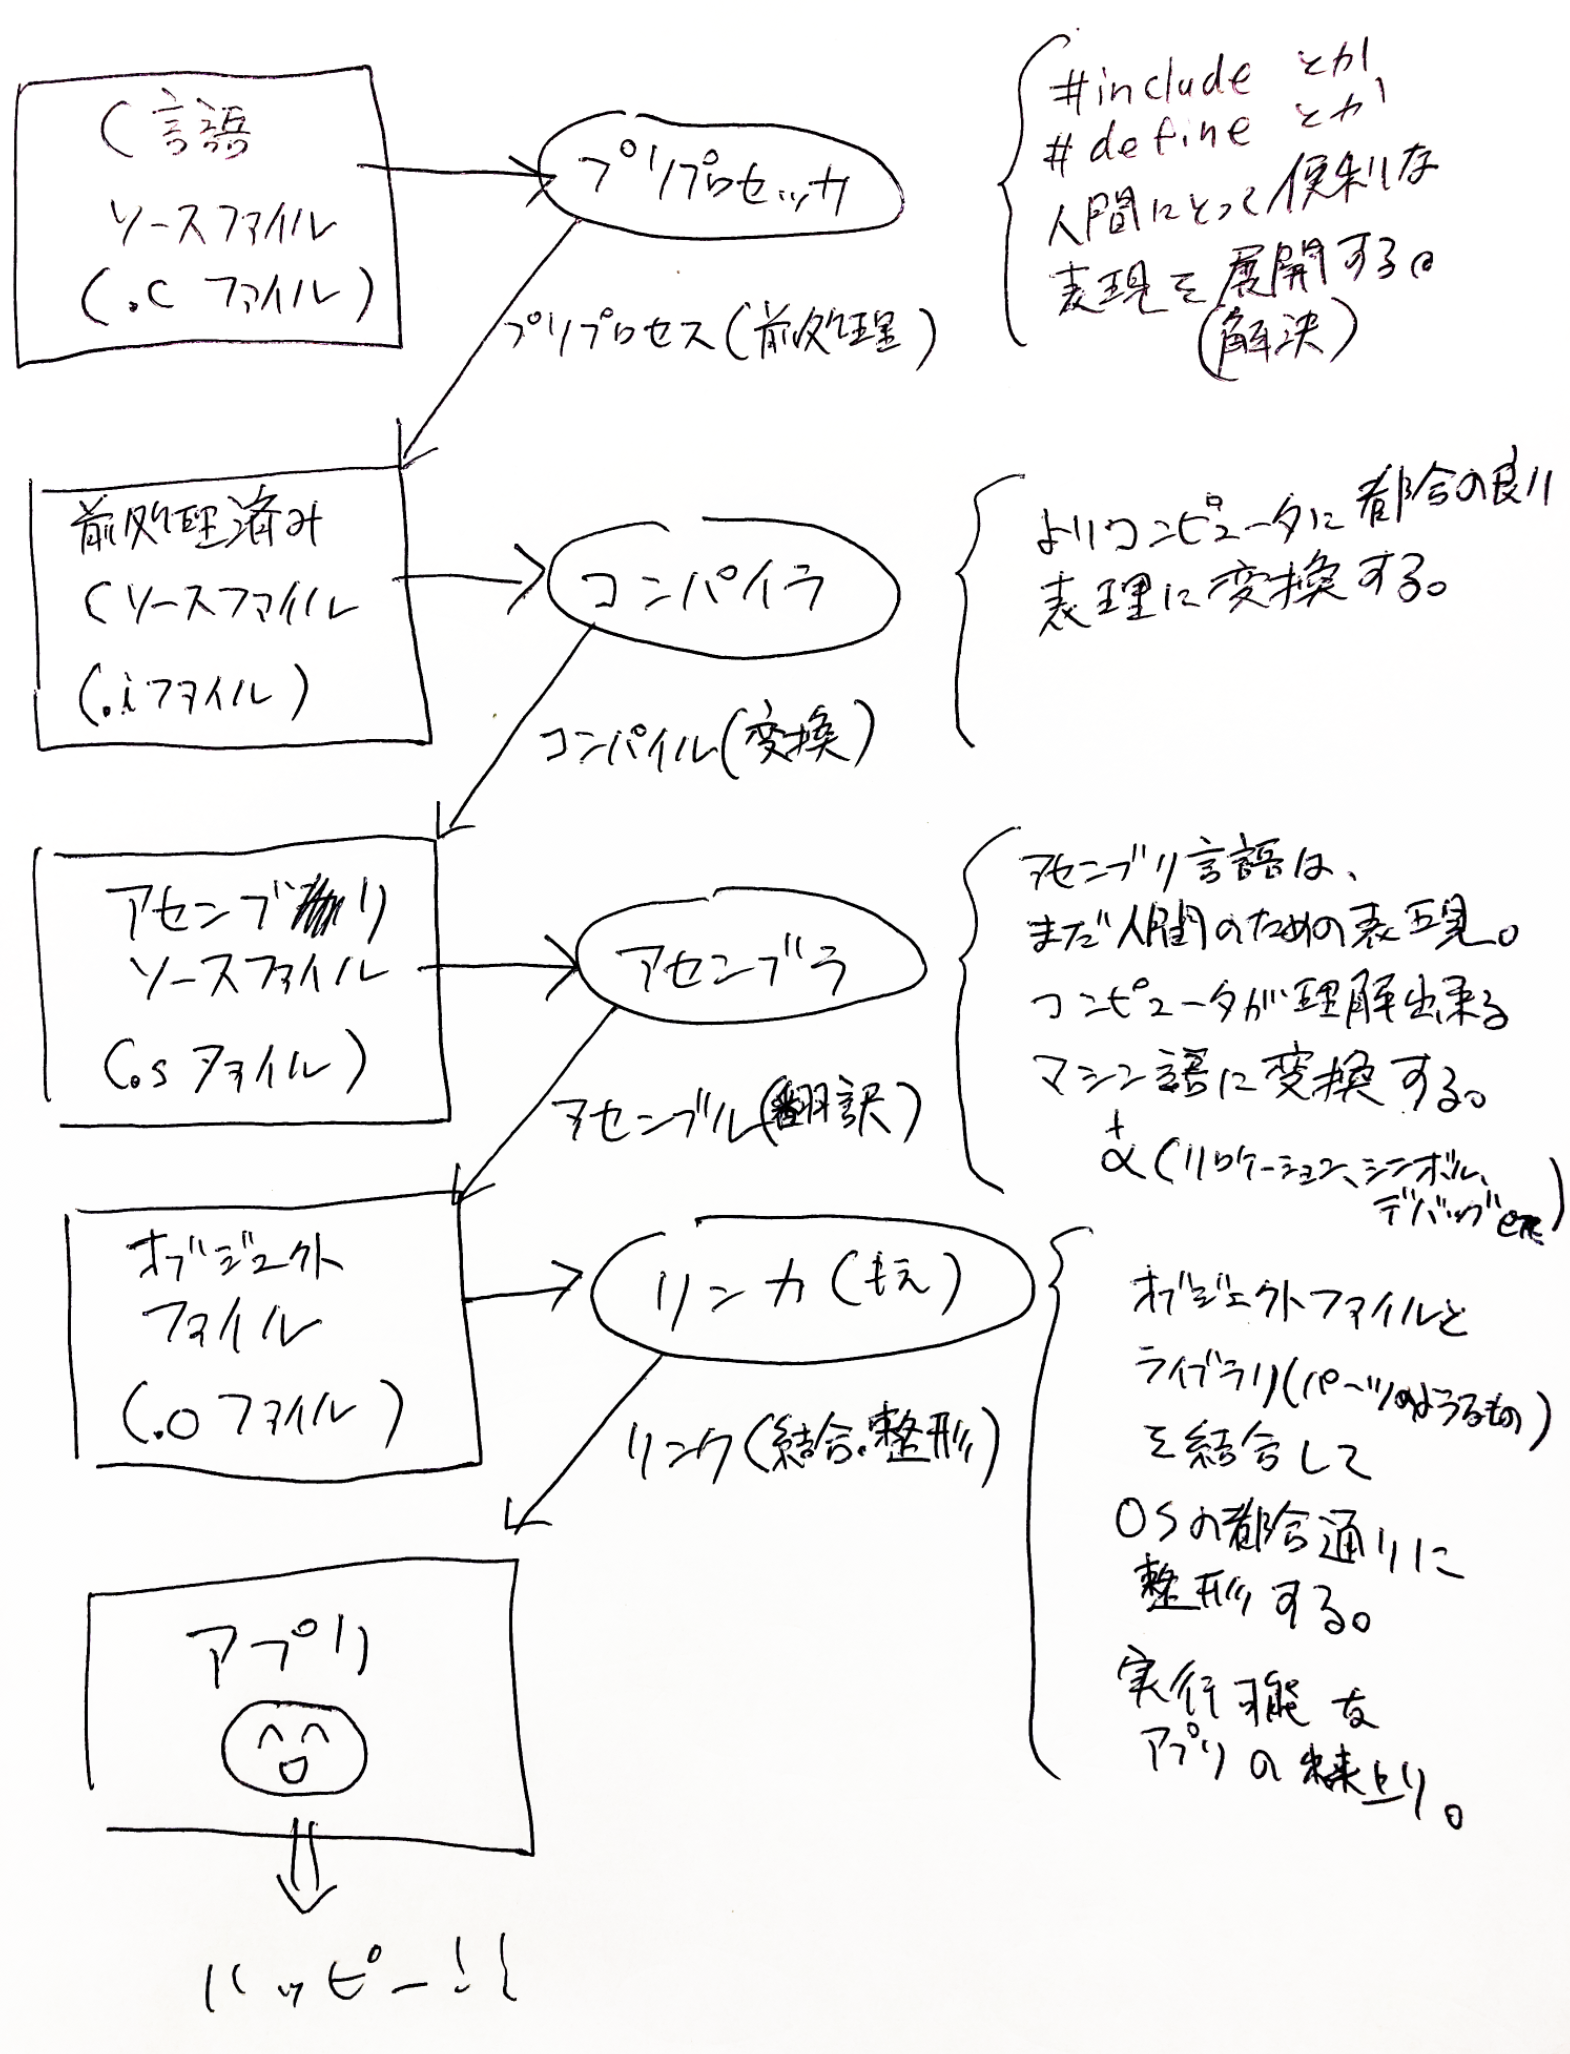 C言語
ソースファイル
(.c ファイル)
プリプロセッサ
プリプロセス(前処理)
#include とか
#define とか
人間にとって便利な
表現を展開する。
(解決)
前処理済み
Cソースファイル
(.iファイル)
コンパイラ
コンパイル(変換)
よりコンピュータに都合の良い
表理に変換する。
アセンブリ
ソースファイル
(.s ファイル)
アセンブラ
アセンブル(翻訳)
アセンブリ言語は、
まだ人間のための表現。
コンピュータが理解出来る
マシン語に変換する。
+
α(リロケーション、シンボル、
デバッグ etc)
オブジェクト
ファイル
(.o ファイル)
リンカ(もえ)
リンク(結合・整形)
オブジェクトファイルと
ライブラリ(パーツのようなもの)
を結合して
OSの都合通りに
整形する。
実行可能な
アプリの出来上り。
アプリ
ハッピー!!